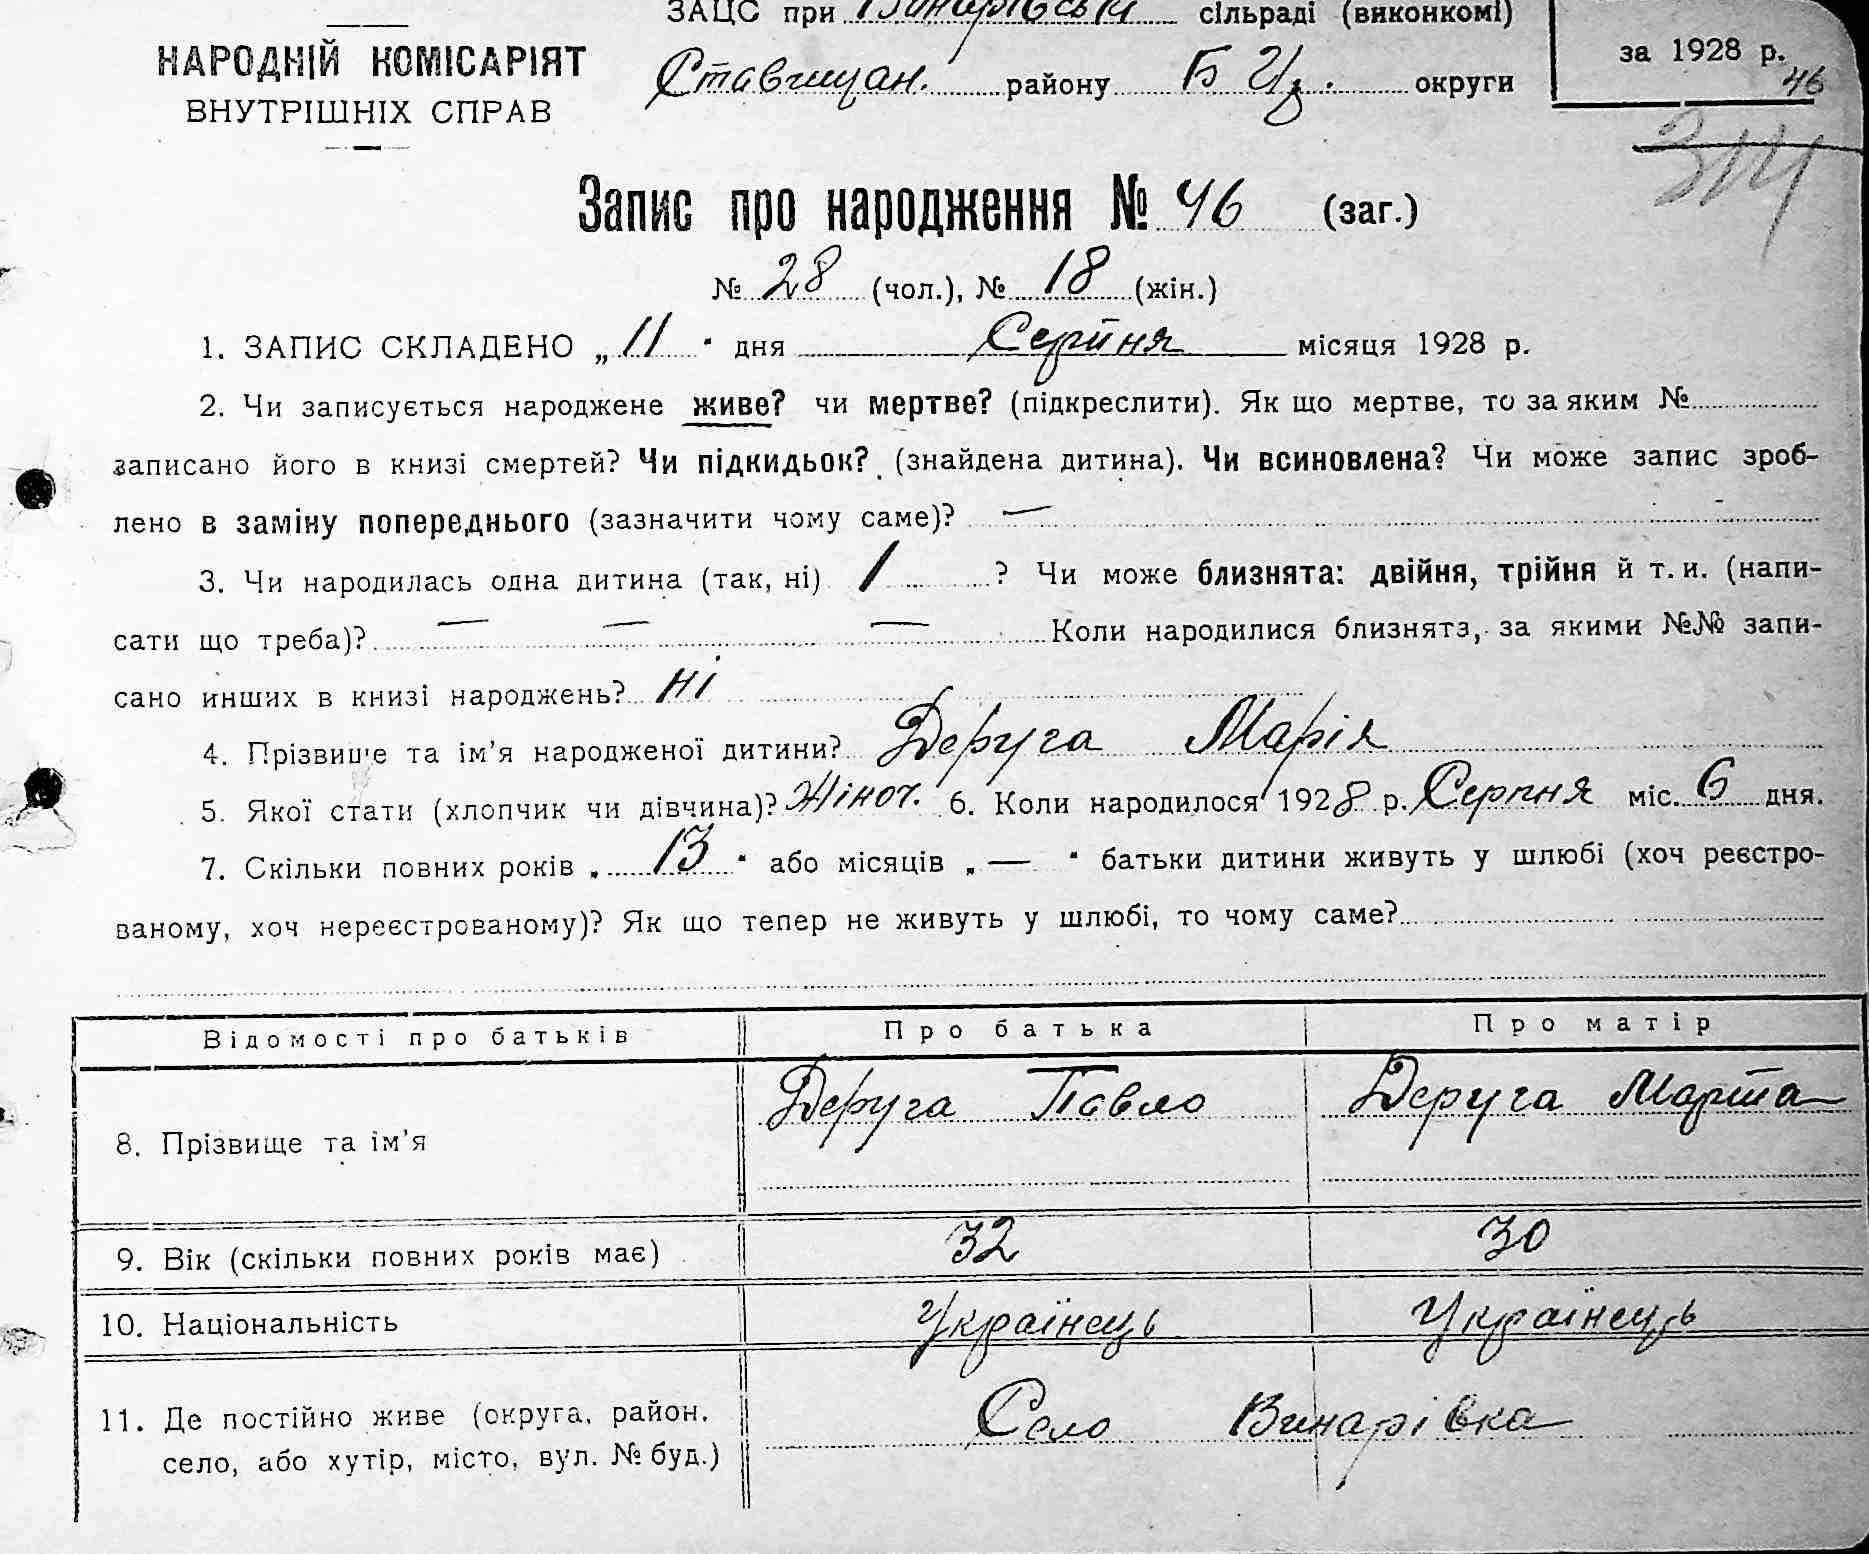 ЗАЦС при Винарівській сільраді (виконкомі)
НАРОДНІЙ КОМІСАРІЯТ
ВНУТРІШНІХ СПРАВ
Ставищан. району Б Ц. округи
за 1928 р.
46
314
Запис про народження № 46 (заг.)
№ 28 (чол.), № 18 (жін.)
1. ЗАПИС СКЛАДЕНО „ 11 " дня Серпня місяця 1928 р.
2. Чи записується народжене живе? чи мертве? (підкреслити). Як що мертве, то за яким №
записано його в книзі смертей? Чи підкидьок? (знайдена дитина). Чи всиновлена? Чи може запис зроб-
лено в заміну попереднього (зазначити чому саме)? —
3. Чи народилась одна дитина (так, ні) 1 ? Чи може близнята: двійня, трійня й т. и. (напи-
сати що треба)? — — — Коли народилися близнята, за якими №№ запи-
сано инших в книзі народжень? ні
4. Прізвище та ім'я народженої дитини? Деруга Марія
5. Якої стати (хлопчик чи дівчина)? Жіноч. 6. Коли народилося 1928 р. Серпня міс. 6 дня.
7. Скільки повних років „ 13 " або місяців „ — " батьки дитини живуть у шлюбі (хоч реєстро-
ваному, хоч нереєстрованому)? Як що тепер не живуть у шлюбі, то чому саме?
Відомості про батьків Про батька Про матір
8. Прізвище та ім'я Деруга Павло Деруга Марта
9. Вік (скільки повних років має) 32 30
10. Національність Українець Українець
11. Де постійно живе (округа, район, Село Винарівка
село, або хутір, місто, вул. № буд.)